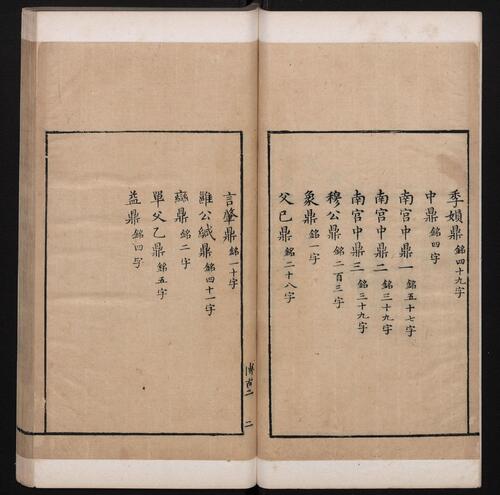 季娟鼎 銘四十九字
中鼎 銘四字
南宮中鼎一 銘五十七字
南宮中鼎二 銘三十九字
南宮中鼎三 銘三十九字
穆公鼎 銘二百三字
象鼎 銘一字
父己鼎 銘二十八字
言肇鼎 銘一十字
雝公緘鼎 銘四十一字
鼎 銘二字
單父乙鼎 銘五字
益鼎 銘四字
博古二 二